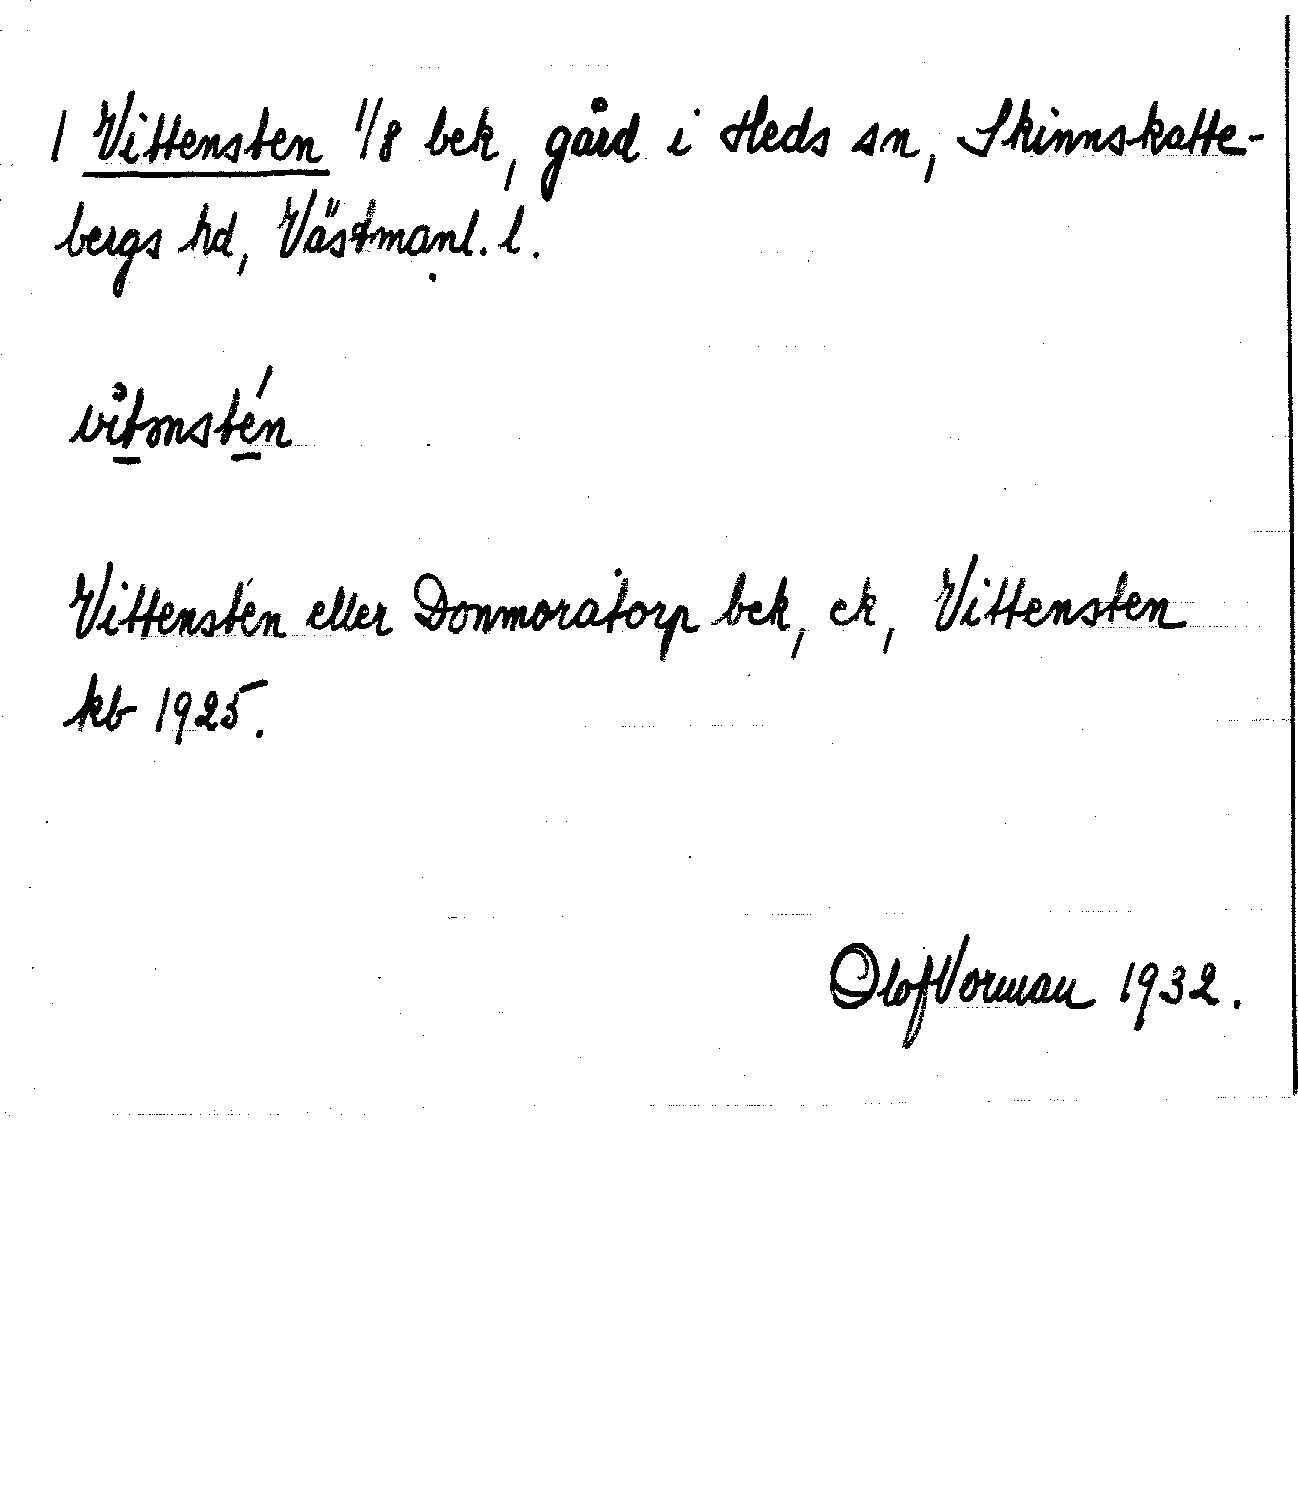 1 Vittensten 1/8 bek, gård i Heds sn, Skinnskatte-
bergs hd, Västmanl. l.
Vittensten eller Donmoratorp bek, ek, Vittensten
kb 1925.
Olof Vorman 1932.